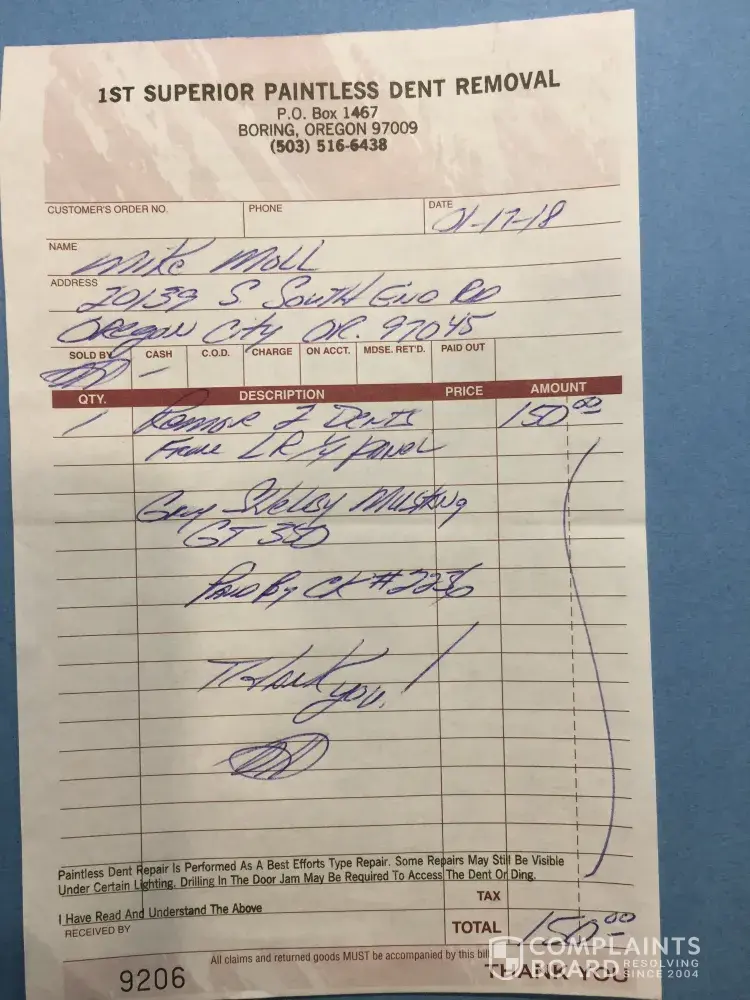 1ST SUPERIOR PAINTLESS DENT REMOVAL
P.O. Box 1467
BORING, OREGON 97009
(503) 516-6438
CUSTOMER'S ORDER NO. PHONE DATE 01-17-18
NAME Mike Moll
ADDRESS 20139 S. South End RD
Oregon City OR. 97045
SOLD BY CASH C.O.D. CHARGE ON ACCT. MDSE. RET'D. PAID OUT
QTY. DESCRIPTION PRICE AMOUNT
1 Remove 2 Dents 150.00
From LR 1/4 panel
Gray Shelby Mustang
GT 350
Paid By CK # 2236
Thank you!
Paintless Dent Repair Is Performed As A Best Efforts Type Repair. Some Repairs May Still Be Visible
Under Certain Lighting. Drilling In The Door Jam May Be Required To Access The Dent Or Ding.
TAX
I Have Read And Understand The Above
RECEIVED BY
TOTAL 150.00
All claims and returned goods MUST be accompanied by this bill
9206 THANK YOU
COMPLAINTS
BOARD RESOLVING SINCE 2004